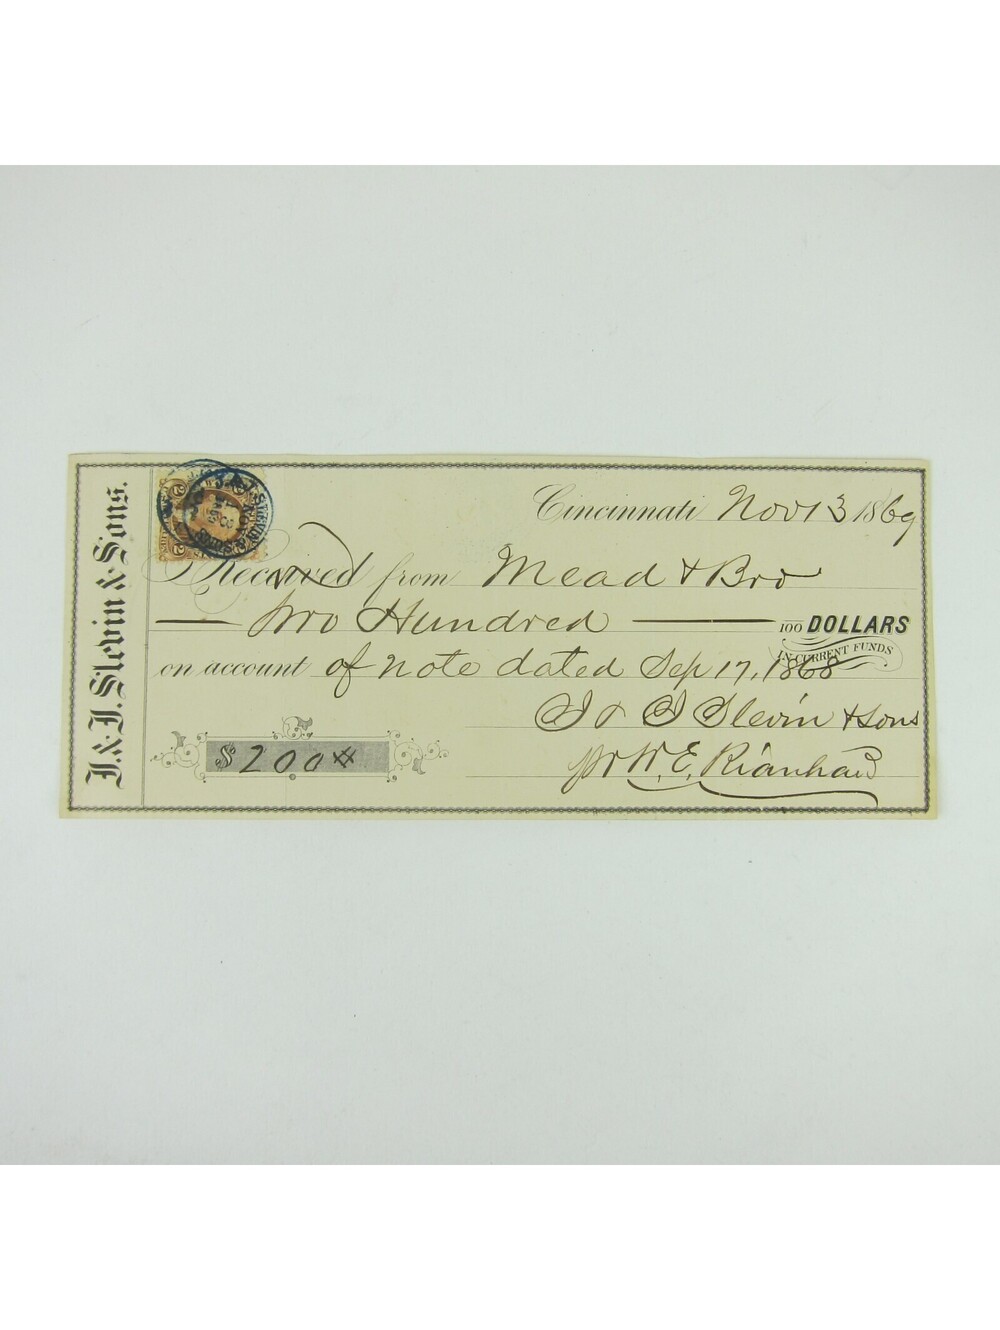 J. & J. Slevin & Sons.
Cincinnati Nov 13 1869
Received from Mead & Bro
Two Hundred 100 DOLLARS
IN CURRENT FUNDS
on account of note dated Sep 17, 1868
J & J Slevin & Sons
$ 200
pr W. E. Rianhard
2
2